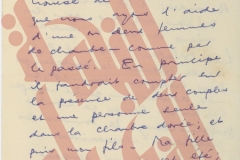 que nous ayons l'aide
d'une ou deux femmes
de chambre - comme par
le passé. En principe
il faudrait compter sur
la présence de deux couples
et une personne seule
dans la chambre dorée, et
puis mon fils. Ma fille